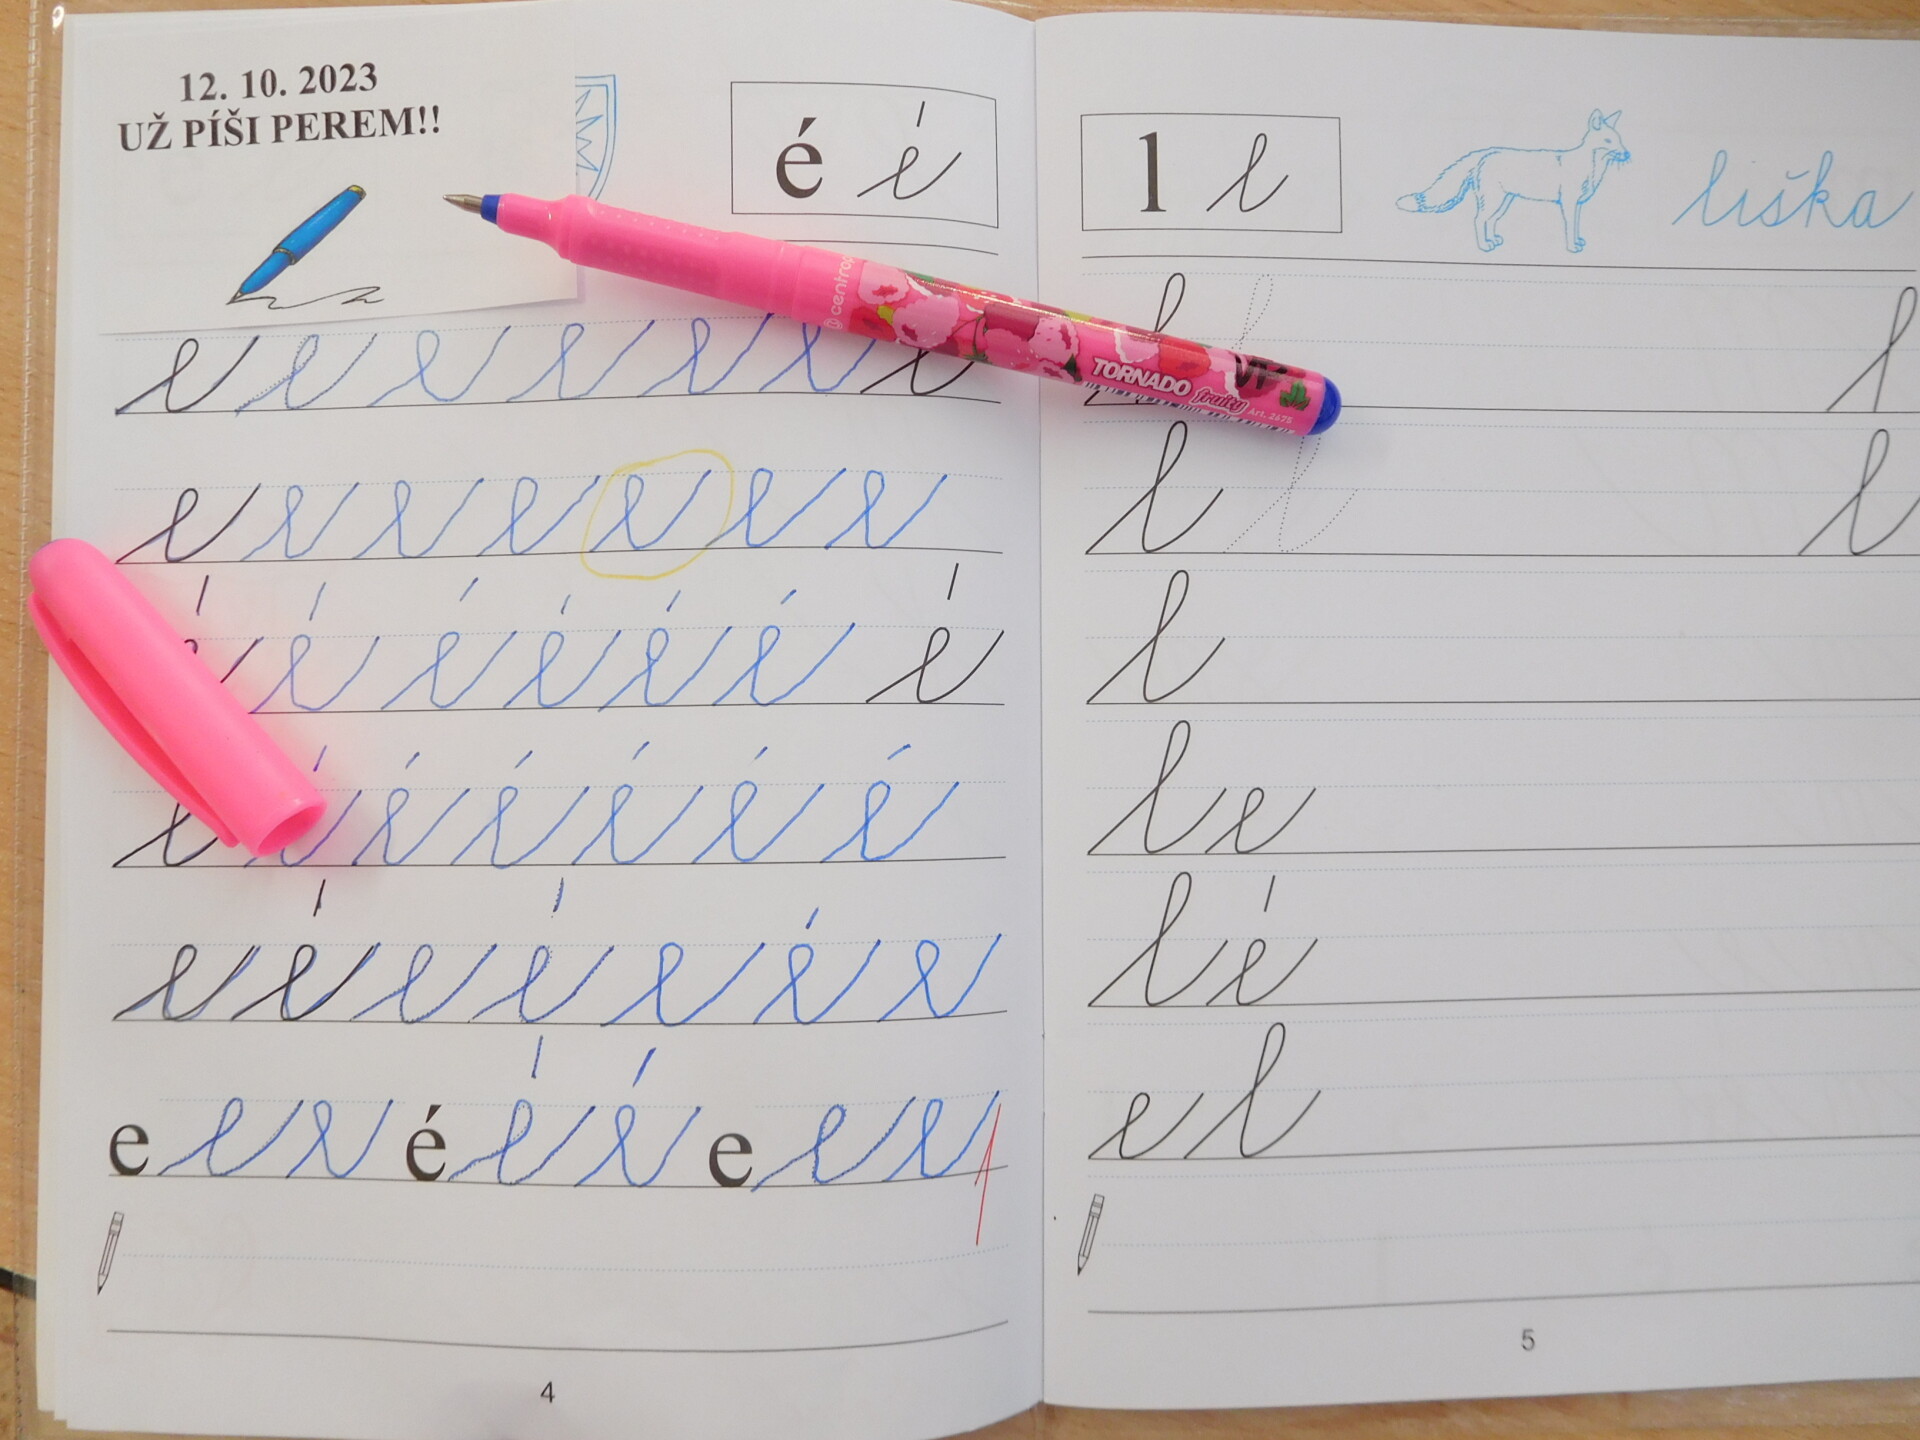 12. 10. 2023
UŽ PÍŠI PEREM!!
é é
e e e e e e e
e e e e e e e
é é é é é é é
é é é é é é é
e é e é e é e
e e e é é é e e e
4
centrop
TORNADO fruity
Art. 2675
l l
liška
l l l
l l l
l
le
lé
el
5